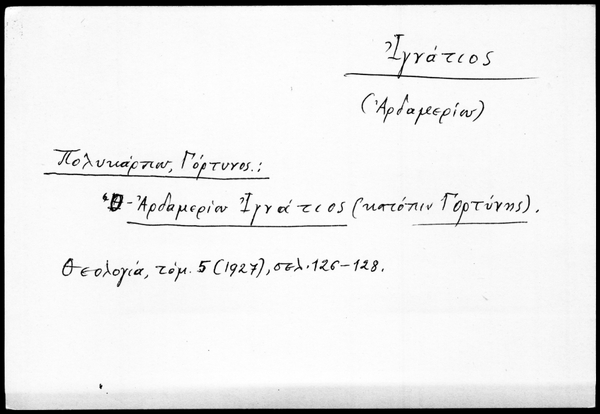 Ἰγνάτιος
(Ἀρδαμερίου)
Πολυκάρπου, Γόρτυνος.:
Ὁ - Ἀρδαμερίου Ἰγνάτιος (κατόπιν Γορτύνης).
Θεολογία, τόμ. 5 (1927), σελ. 126-128.